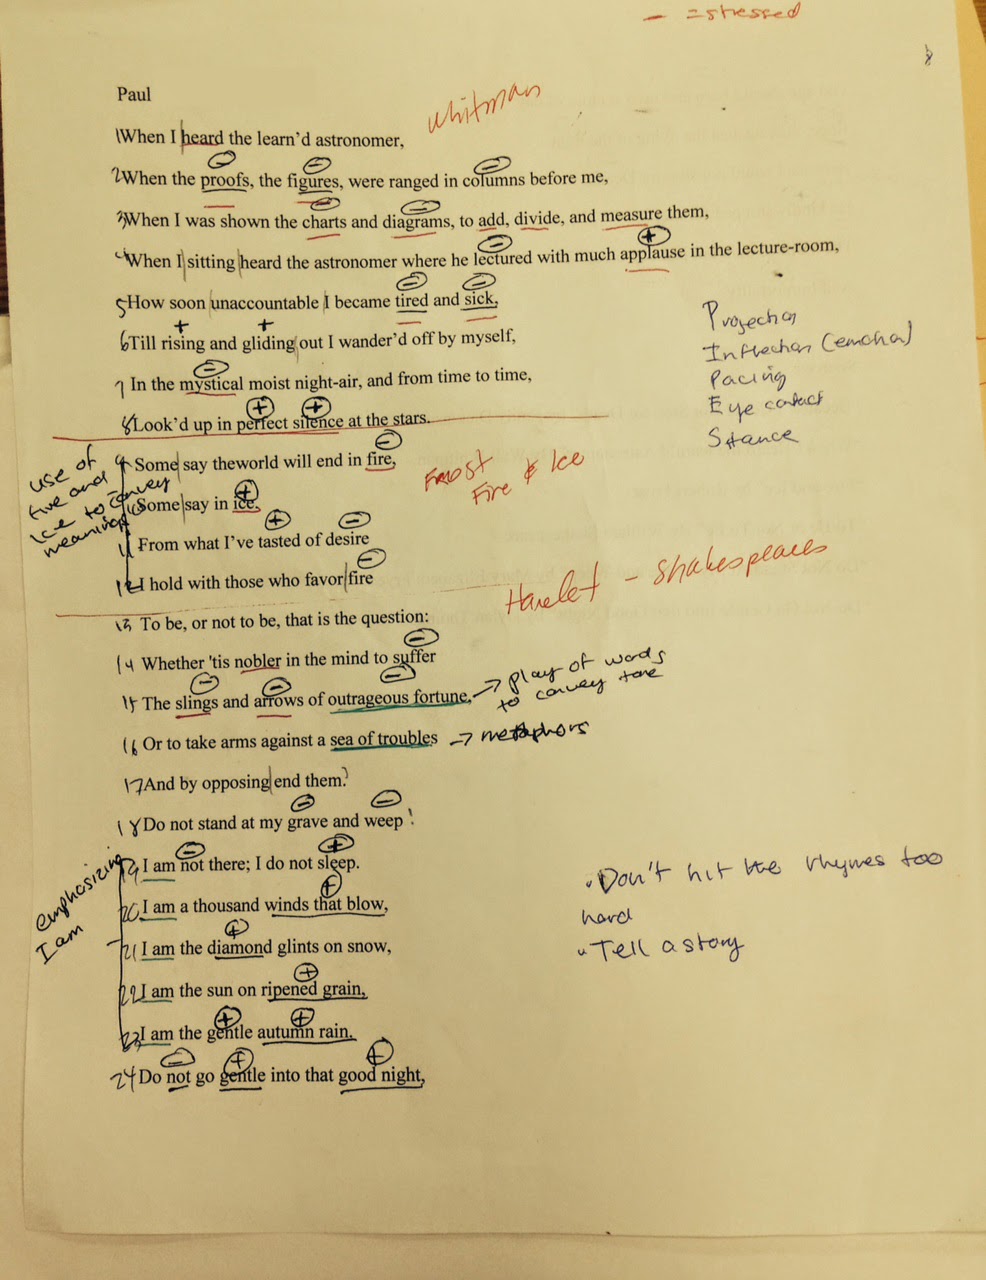 - = stressed
Paul
Whitman
1 When I heard the learn'd astronomer,
2 When the proofs, the figures, were ranged in columns before me,
3 When I was shown the charts and diagrams, to add, divide, and measure them,
4 When I sitting heard the astronomer where he lectured with much applause in the lecture-room,
5 How soon unaccountable I became tired and sick,
6 Till rising and gliding out I wander'd off by myself,
7 In the mystical moist night-air, and from time to time,
8 Look'd up in perfect silence at the stars.
Projection
Inflection (emotion)
Pacing
Eye contact
Stance
use of
fire and
Ice to convey
meaning
9 Some say theworld will end in fire,
10 Some say in ice.
11 From what I've tasted of desire
12 I hold with those who favor fire
Frost
Fire & Ice
Hamlet - Shakespeares
13 To be, or not to be, that is the question:
14 Whether 'tis nobler in the mind to suffer
15 The slings and arrows of outrageous fortune, → play of words
to convey tone
16 Or to take arms against a sea of troubles → metaphors
17 And by opposing end them?
18 Do not stand at my grave and weep
emphasizing
I am
19 I am not there; I do not sleep.
20 I am a thousand winds that blow,
21 I am the diamond glints on snow,
22 I am the sun on ripened grain,
23 I am the gentle autumn rain.
24 Do not go gentle into that good night,
Don't hit the rhymes too
hard
Tell a story